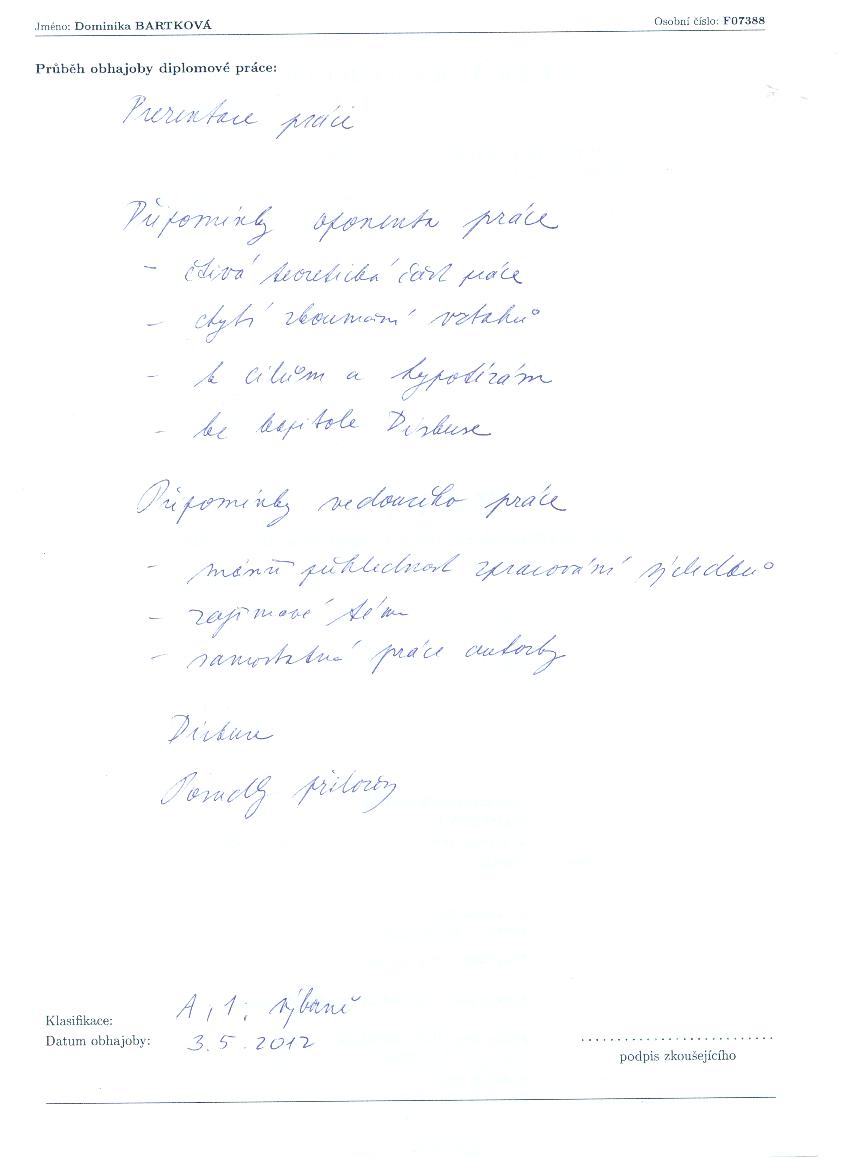 Jméno: Dominika BARTKOVÁ Osobní číslo: F07388
Průběh obhajoby diplomové práce:
Prezentace práce
Připomínky oponenta práce
- čtivá teoretická část práce
- chybí zkoumání vztahů
- k cílům a hypotézám
- ke kapitole Diskuse
Připomínky vedoucího práce
- menší přehlednost zpracování výsledků
- zajímavé téma
- samostatná práce autorky
Diskuse
Posudky přiloženy
Klasifikace: A, 1, výborně
Datum obhajoby: 3.5.2012
podpis zkoušejícího